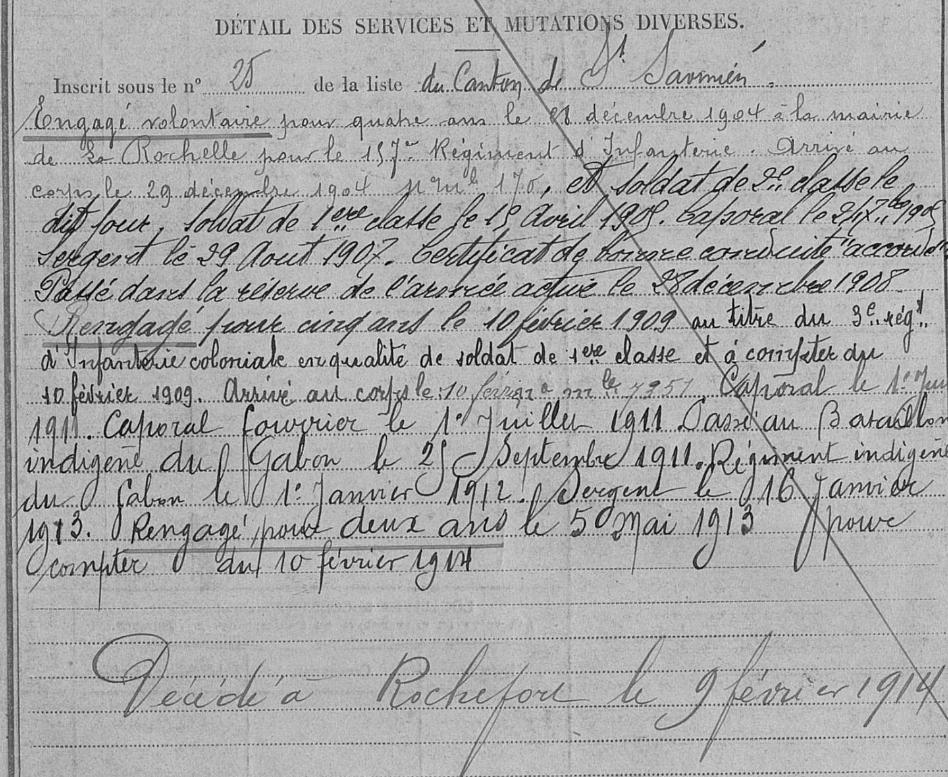 DÉTAIL DES SERVICES ET MUTATIONS DIVERSES.
Inscrit sous le n° 25 de la liste du Canton de St Savinien.
Engagé volontaire pour quatre ans le 28 décembre 1904 à la mairie
de La Rochelle pour le 157e Régiment d'Infanterie. Arrivé au
corps le 29 décembre 1904 n° ml 176. et soldat de 2e classe le
dit jour, soldat de 1ere classe le 15 Avril 1905. Caporal le
Sergent le 29 Aout 1907. Certificat de bonne conduite "accordé"
Passé dans la réserve de l'armée active le 28 décembre 1908.
Rengagé pour cinq ans le 10 février 1909 au titre du 3e régt
d'Infanterie coloniale en qualité de soldat de 1ere classe et à compter du
10 février 1909. Arrivé au corps le 10 février n° mle 7951 Caporal le 1er
1911. Caporal fourrier le 1er Juillet 1911. Passé au Bataillon
indigène du Gabon le 25 Septembre 1911. Régiment indigène
du Gabon le 1er Janvier 1912. Sergent le 16 Janvier
1913. Rengagé pour deux ans le 5 Mai 1913 pour
compter du 10 février 1914
Décédé à Rochefort le 9 février 1914